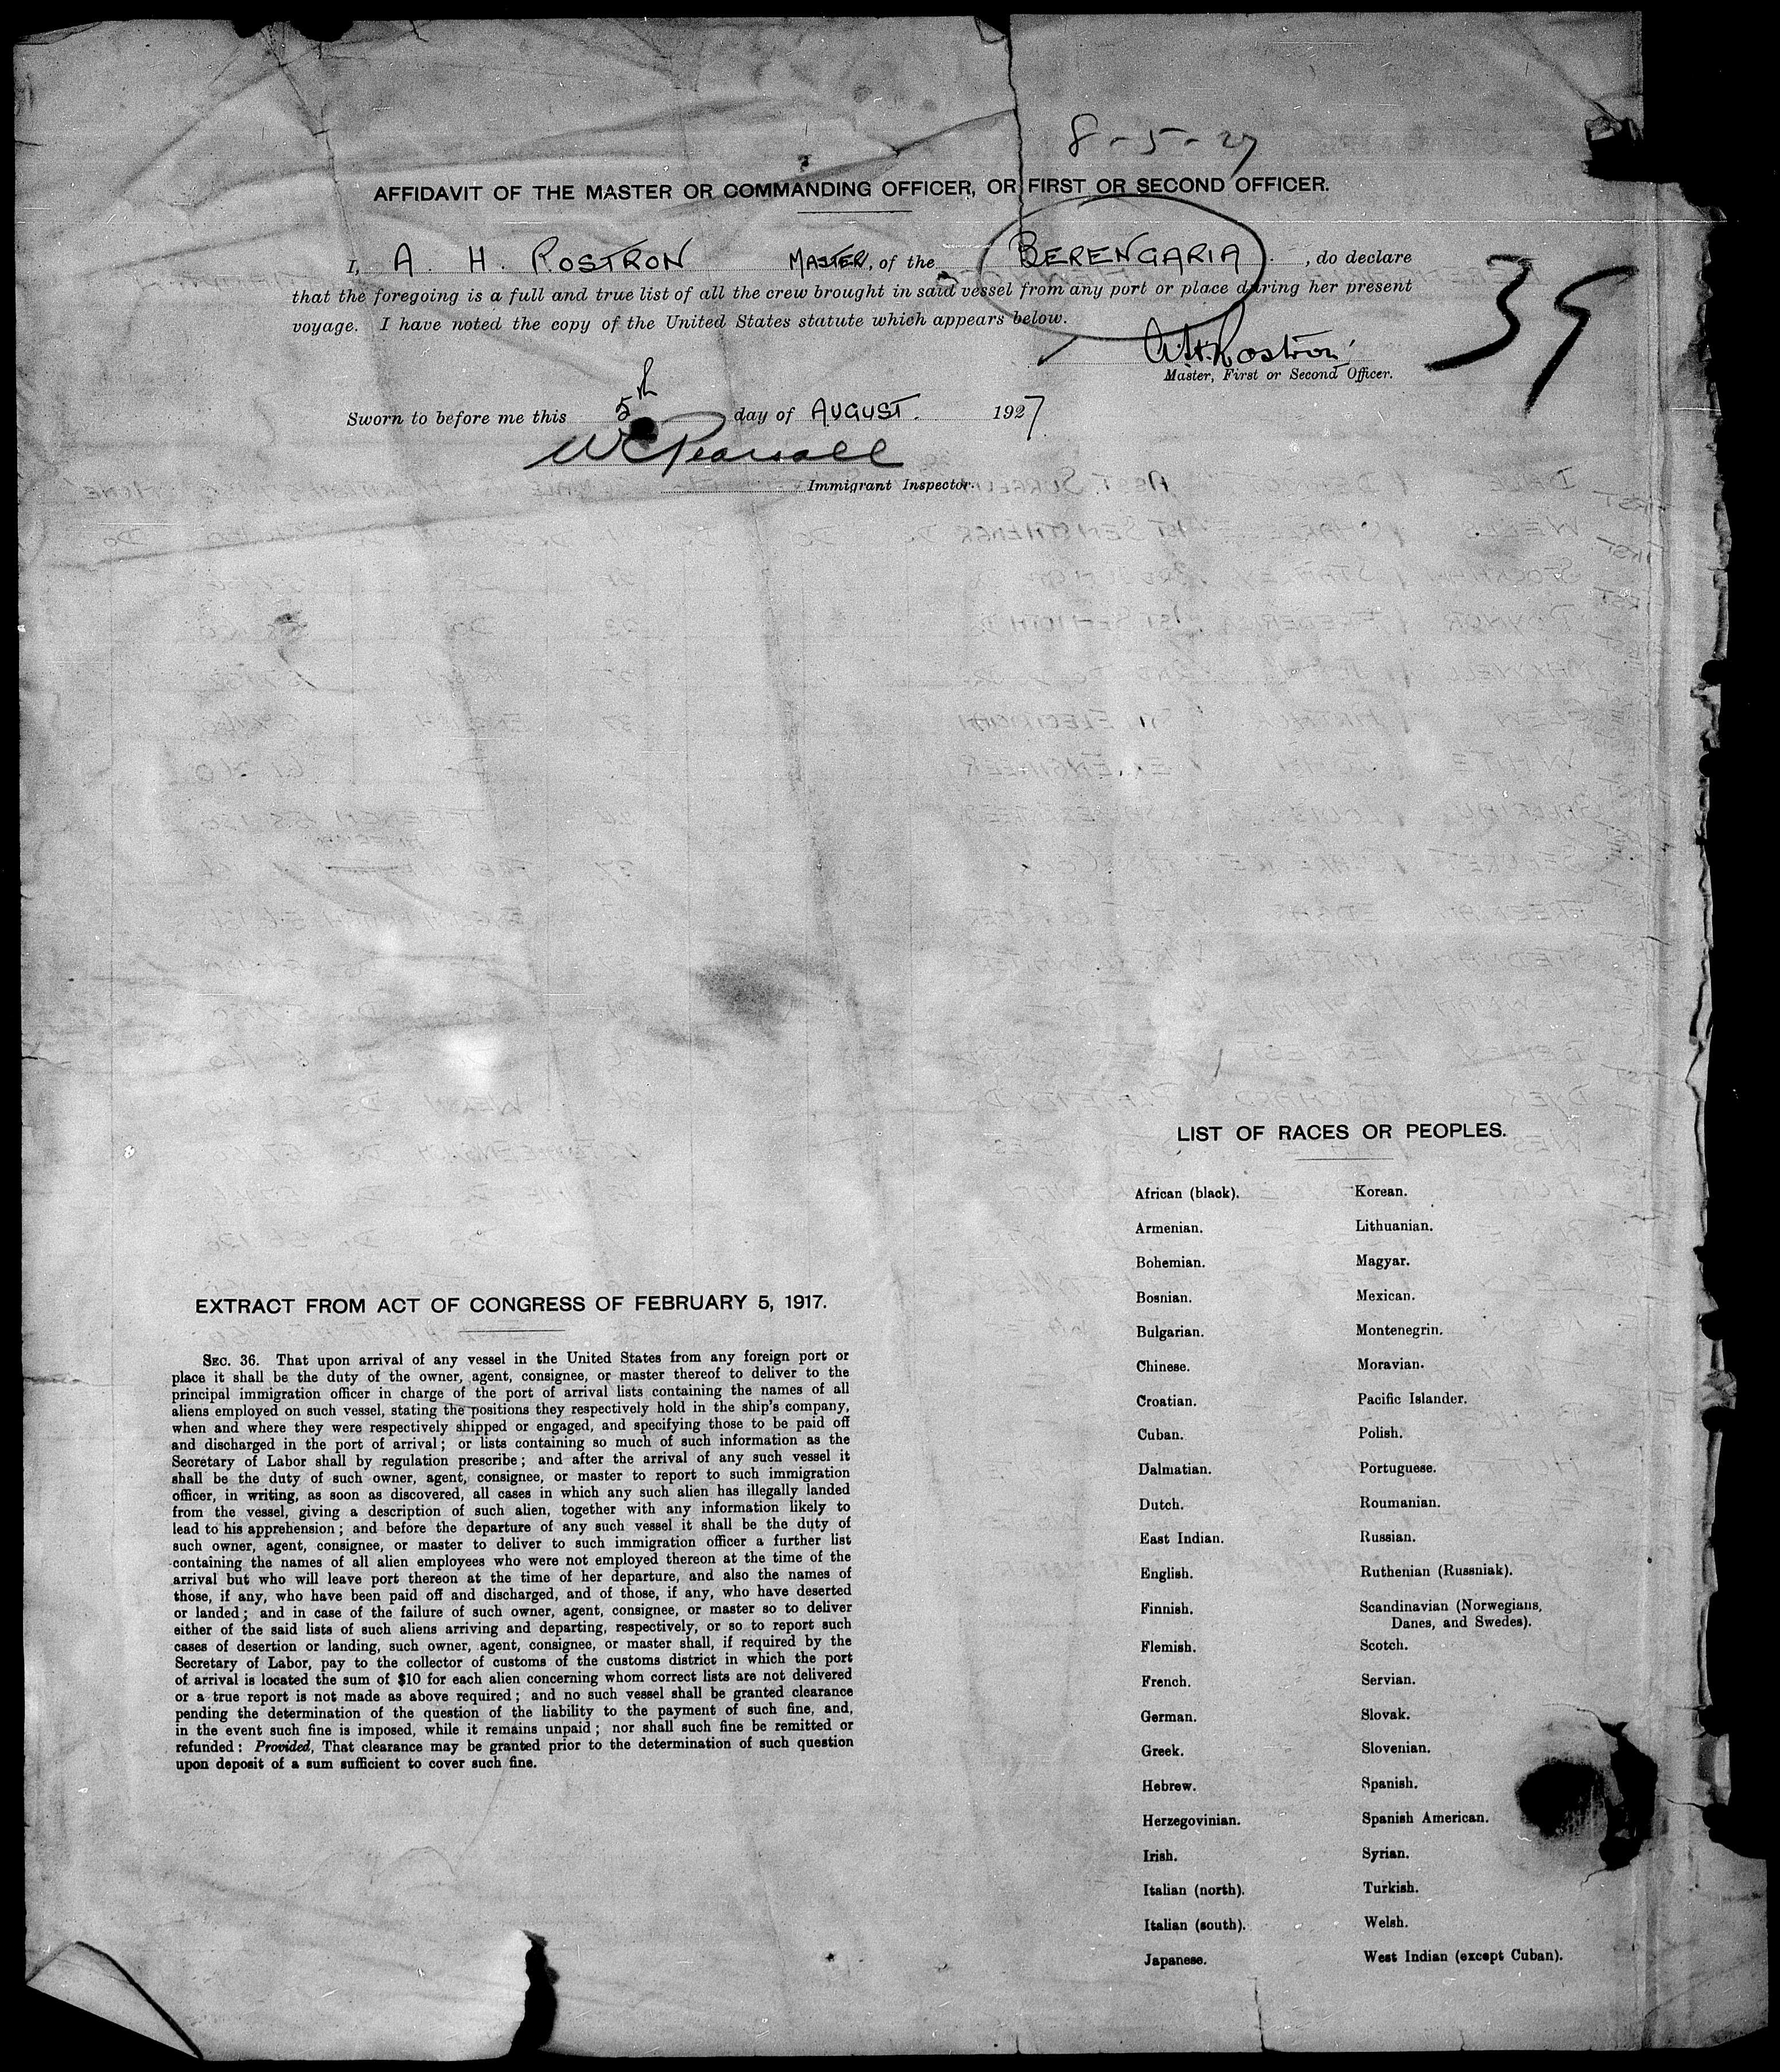 8-5-27
AFFIDAVIT OF THE MASTER OR COMMANDING OFFICER, OR FIRST OR SECOND OFFICER.
I, A. H. ROSTRON MASTER, of the BERENGARIA, do declare
that the foregoing is a full and true list of all the crew brought in said vessel from any port or place during her present
voyage. I have noted the copy of the United States statute which appears below.
39
A.H.Rostron
Master, First or Second Officer.
Sworn to before me this 5th day of AUGUST. 1927
WC Pearsall
Immigrant Inspector.
LIST OF RACES OR PEOPLES.
African (black). Korean.
Armenian. Lithuanian.
Bohemian. Magyar.
Bosnian. Mexican.
Bulgarian. Montenegrin.
Chinese. Moravian.
Croatian. Pacific Islander.
Cuban. Polish.
Dalmatian. Portuguese.
Dutch. Roumanian.
East Indian. Russian.
English. Ruthenian (Russniak).
Finnish. Scandinavian (Norwegians,
Danes, and Swedes).
Flemish. Scotch.
French. Servian.
German. Slovak.
Greek. Slovenian.
Hebrew. Spanish.
Herzegovinian. Spanish American.
Irish. Syrian.
Italian (north). Turkish.
Italian (south). Welsh.
Japanese. West Indian (except Cuban).
EXTRACT FROM ACT OF CONGRESS OF FEBRUARY 5, 1917.
SEC. 36. That upon arrival of any vessel in the United States from any foreign port or
place it shall be the duty of the owner, agent, consignee, or master thereof to deliver to the
principal immigration officer in charge of the port of arrival lists containing the names of all
aliens employed on such vessel, stating the positions they respectively hold in the ship's company,
when and where they were respectively shipped or engaged, and specifying those to be paid off
and discharged in the port of arrival; or lists containing so much of such information as the
Secretary of Labor shall by regulation prescribe; and after the arrival of any such vessel it
shall be the duty of such owner, agent, consignee, or master to report to such immigration
officer, in writing, as soon as discovered, all cases in which any such alien has illegally landed
from the vessel, giving a description of such alien, together with any information likely to
lead to his apprehension; and before the departure of any such vessel it shall be the duty of
such owner, agent, consignee, or master to deliver to such immigration officer a further list
containing the names of all alien employees who were not employed thereon at the time of the
arrival but who will leave port thereon at the time of her departure, and also the names of
those, if any, who have been paid off and discharged, and of those, if any, who have deserted
or landed; and in case of the failure of such owner, agent, consignee, or master so to deliver
either of the said lists of such aliens arriving and departing, respectively, or so to report such
cases of desertion or landing, such owner, agent, consignee, or master shall, if required by the
Secretary of Labor, pay to the collector of customs of the customs district in which the port
of arrival is located the sum of $10 for each alien concerning whom correct lists are not delivered
or a true report is not made as above required; and no such vessel shall be granted clearance
pending the determination of the question of the liability to the payment of such fine, and,
in the event such fine is imposed, while it remains unpaid; nor shall such fine be remitted or
refunded: Provided, That clearance may be granted prior to the determination of such question
upon deposit of a sum sufficient to cover such fine.